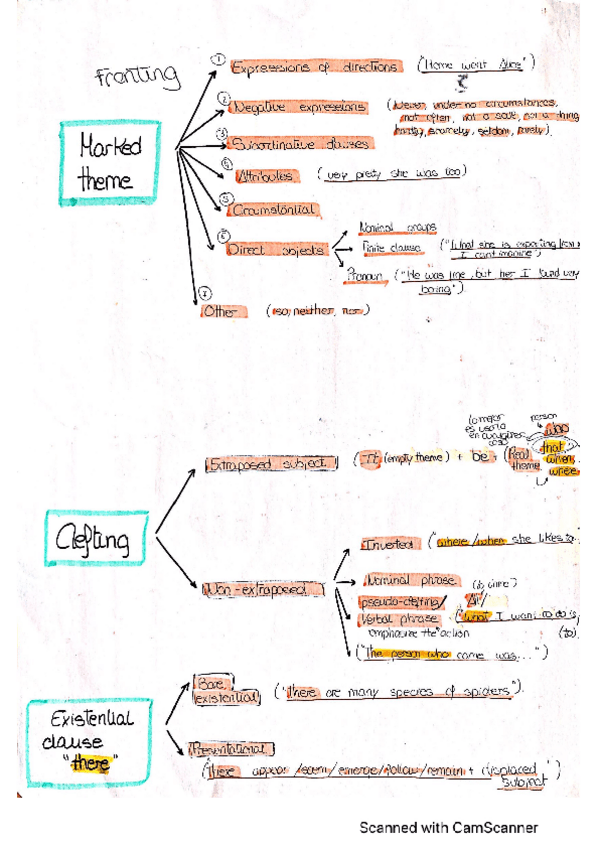 Fronting
Marked theme
① Expressions of directions ("Home went Alice")
② Negative expressions (Never, under no circumstances,
not often, not a soul, not a thing
hardly, scarcely, seldom, rarely)
③ Subordinative clauses
④ Attributes (very pretty she was too)
⑤ Circumstantial
⑥ Direct objects
Nominal groups
Finite clause ("What she is expecting from
I can't imagine")
Pronoun ("He was fine, but her I found very
boring")
⑦ Other (so, neither, nor)
Clefting
lo mejor
es usarla
en cualquier
caso
person
who
that
when
where
Extraposed subject ("It" (empty theme) + be + (Real
theme
Non-extraposed
Inverted ("where/when she likes to...
Nominal phrase
pseudo-clefting/ "All"/
Verbal phrase ("what I want to do is
emphasize the "action" (to)
("The person who came was...")
Existential
clause
"there"
Bare
existential ("there are many species of spiders").
Presentational
(there appear/seem/emerge/follow/remain + "displaced
subject")
Scanned with CamScanner